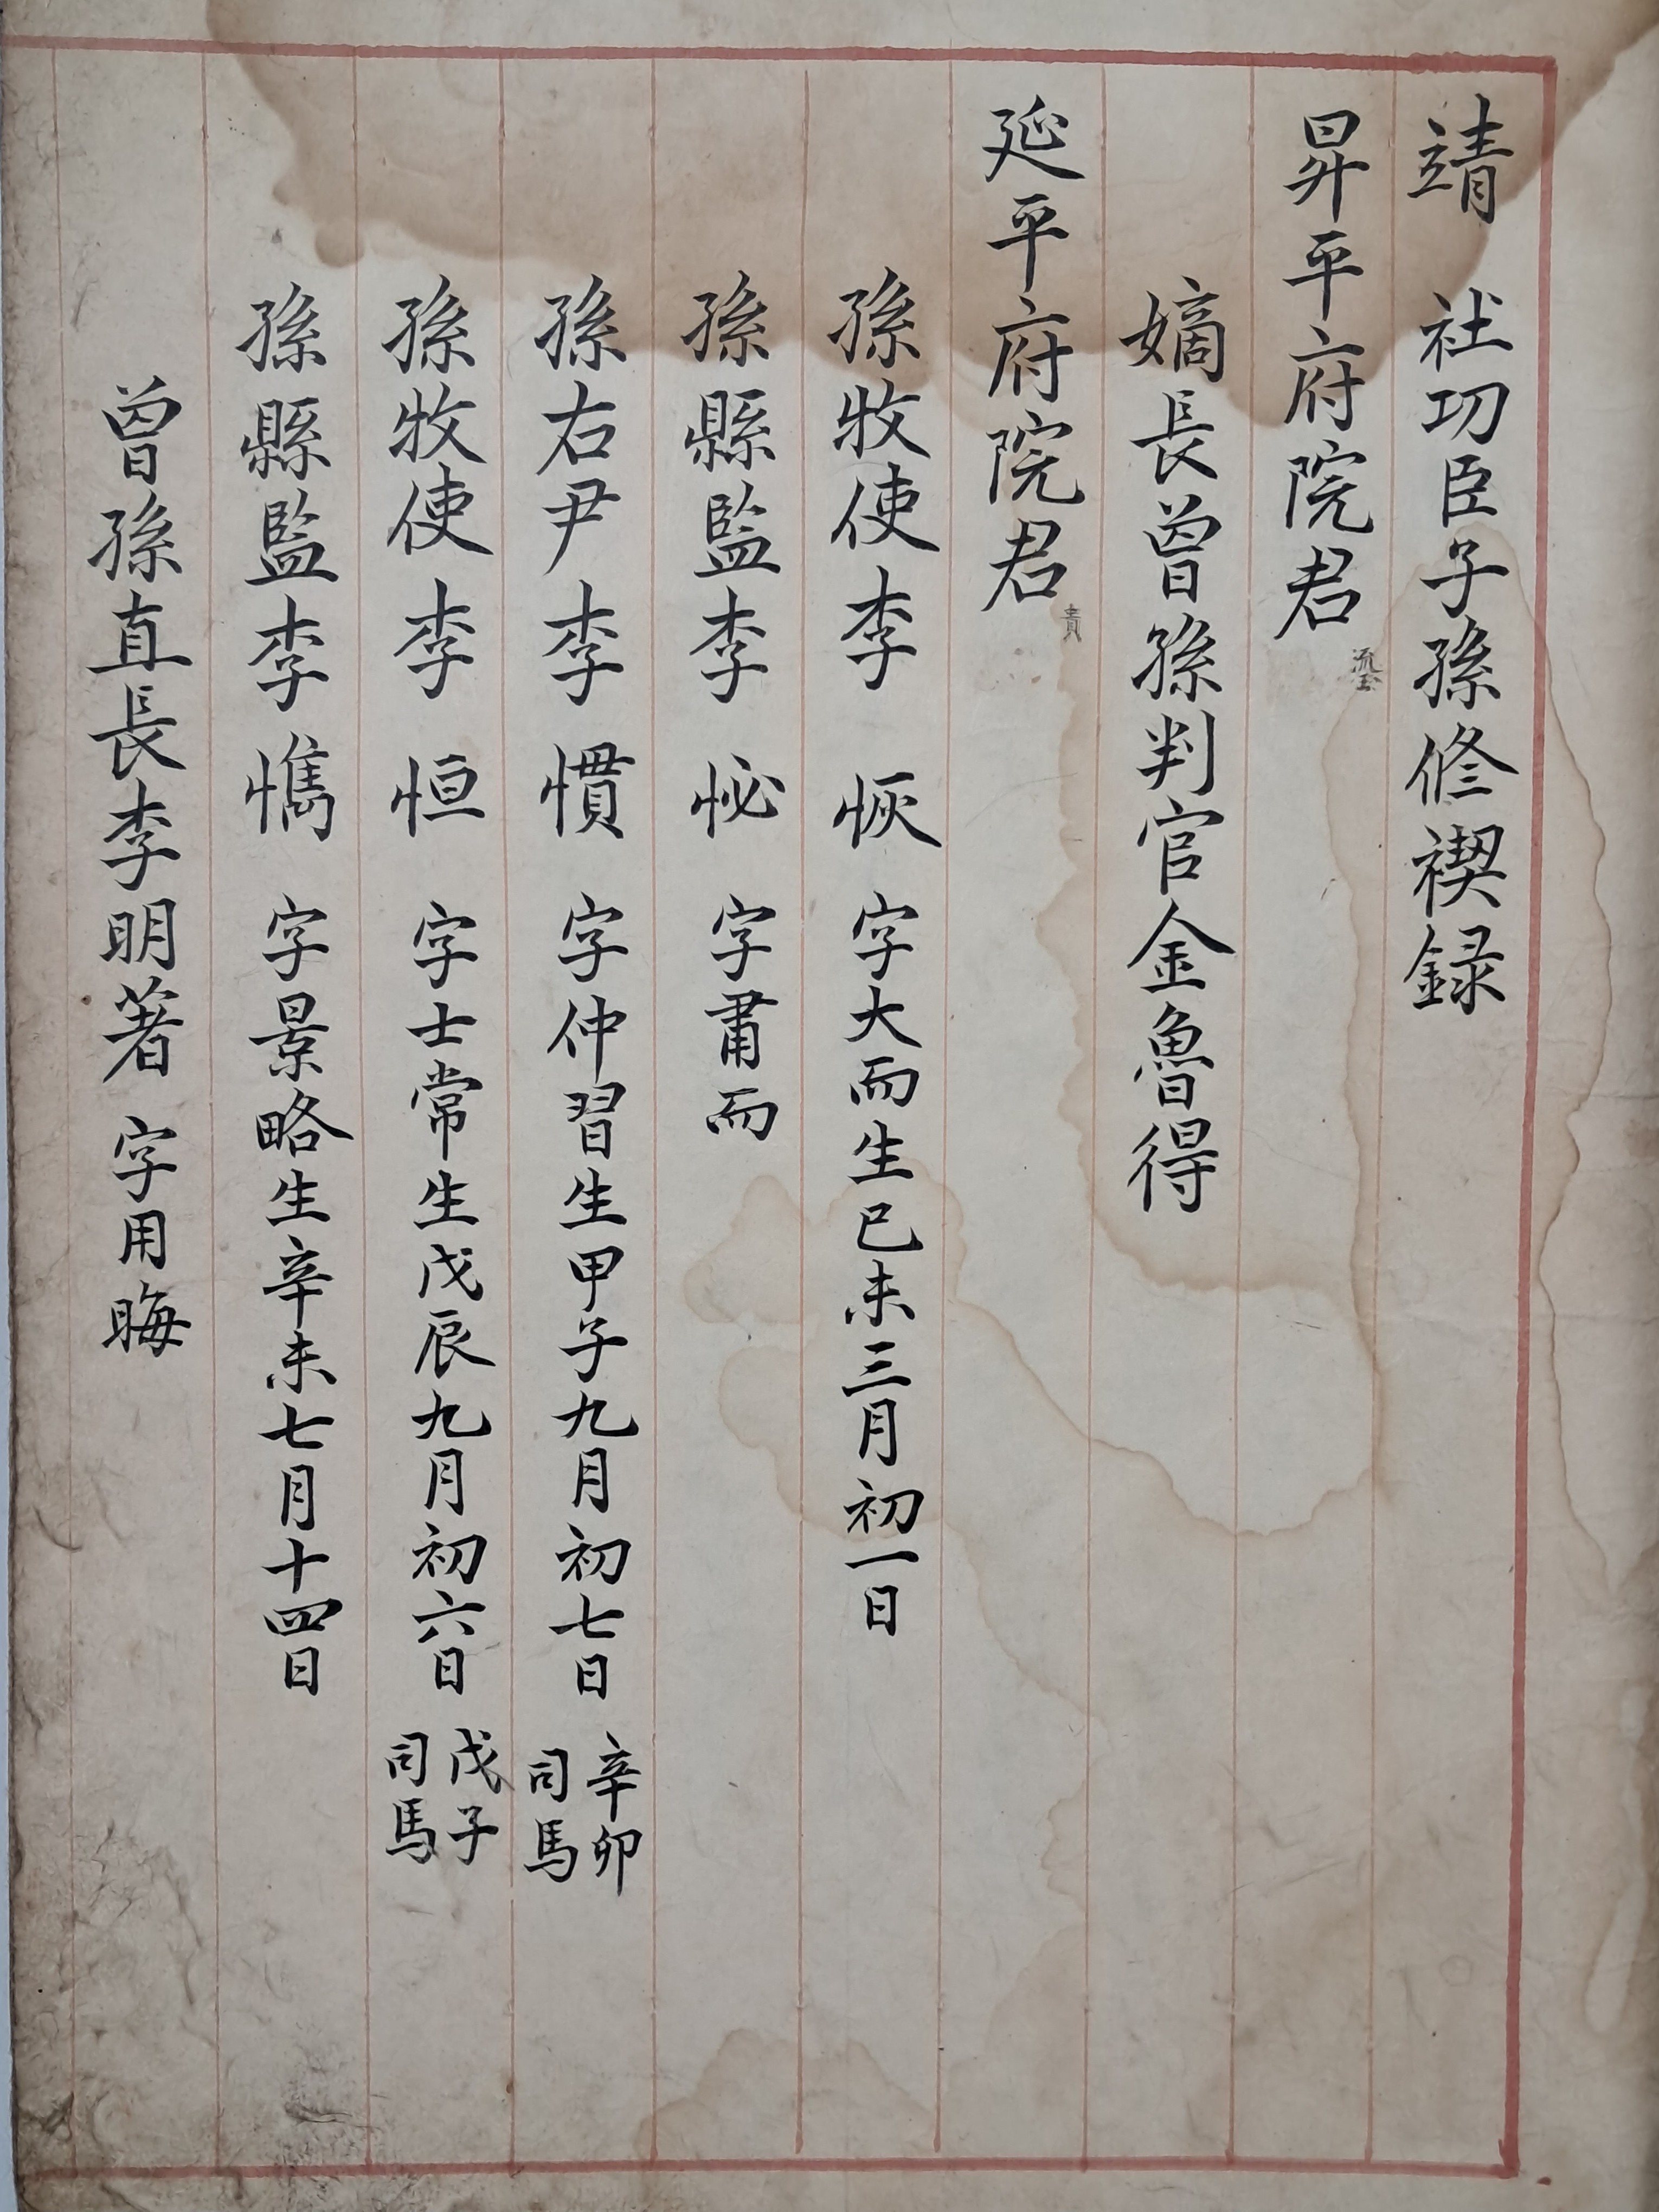 靖　社功臣子孫修禊録
昇平府院君 瑬
嫡長曾孫判官金魯得
延平府院君 貴
孫牧使李　恢　字大而生己未三月初一日
孫縣監李　怭　字肅而
孫右尹李　慣　字仲習生甲子九月初七日 辛卯司馬
孫牧使李　恒　字士常生戊辰九月初六日 戊子司馬
孫縣監李　懏　字景略生辛未七月十四日
曾孫直長李明著　字用晦